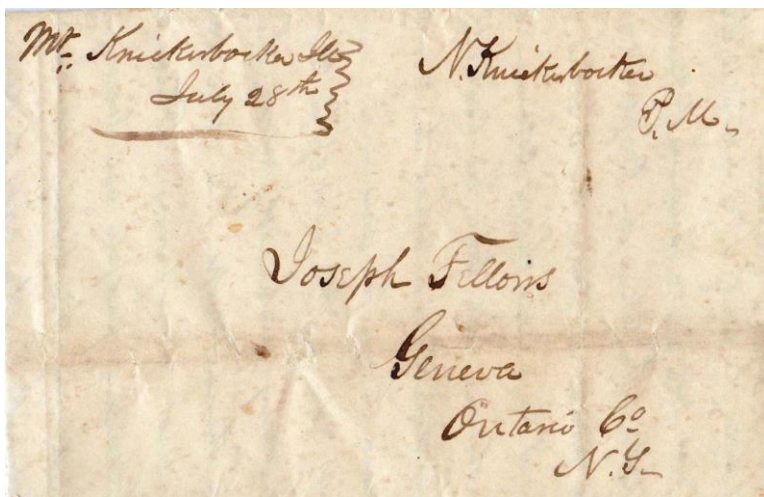 Mt. Knickerbocker Ills
July 28th
N. Knickerbocker
P. M.
Joseph Fellows
Geneva
Ontario Co
N. Y.